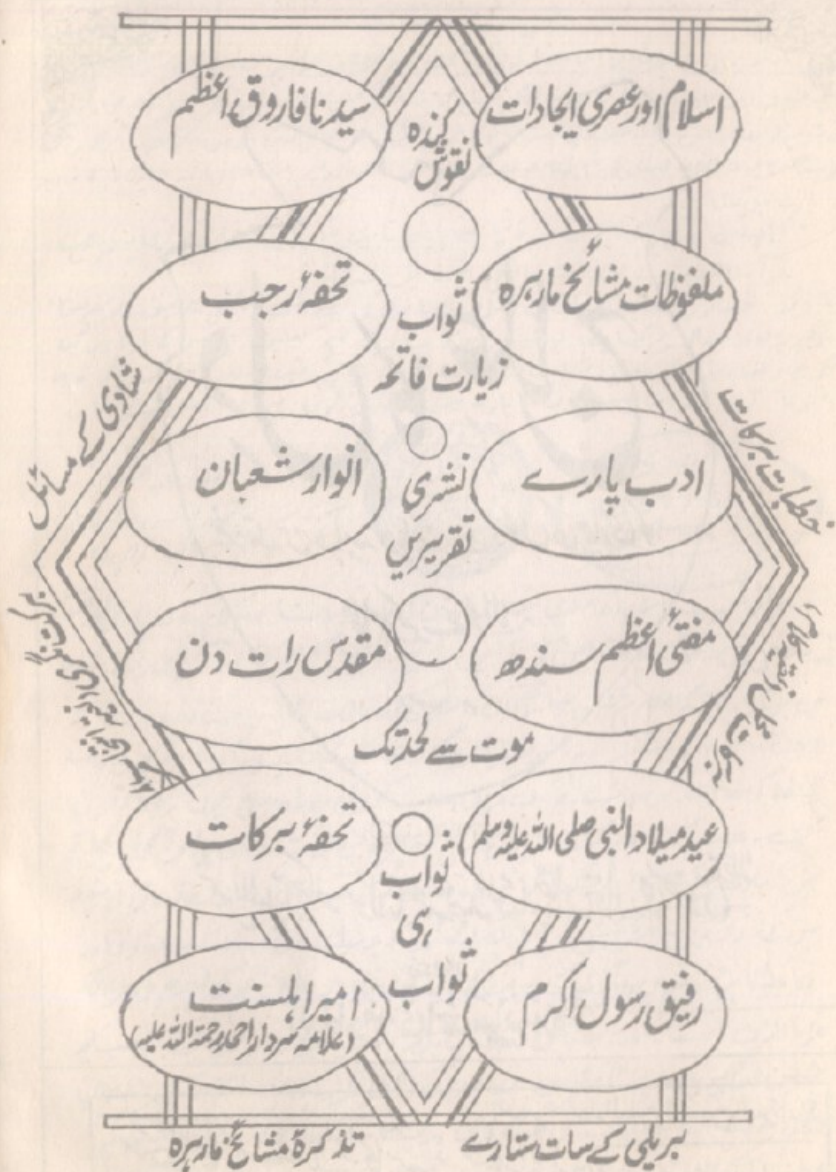 اسلام اور عصری ایجادات
سیدنا فاروق اعظم
کندہ
نقوش
ملفوظات مشائخ مارہرہ
تحفۂ رجب
ثواب
زیارت فاتحہ
خطبات برکات
شادی کے مسائل
ادب پارے
انوار شعبان
نشری
تقریریں
مفتیٔ اعظم سندھ
مقدس رات دن
موت سے لحد تک
عید میلاد النبی صلی اللہ علیہ وسلم
تحفۂ برکات
ثواب
ہی
ثواب
رفیق رسول اکرم
امیر اہلسنت
(علامہ سردار احمد رحمۃ اللہ علیہ)
بریلی کے سات ستارے
تذکرۂ مشائخ مارہرہ